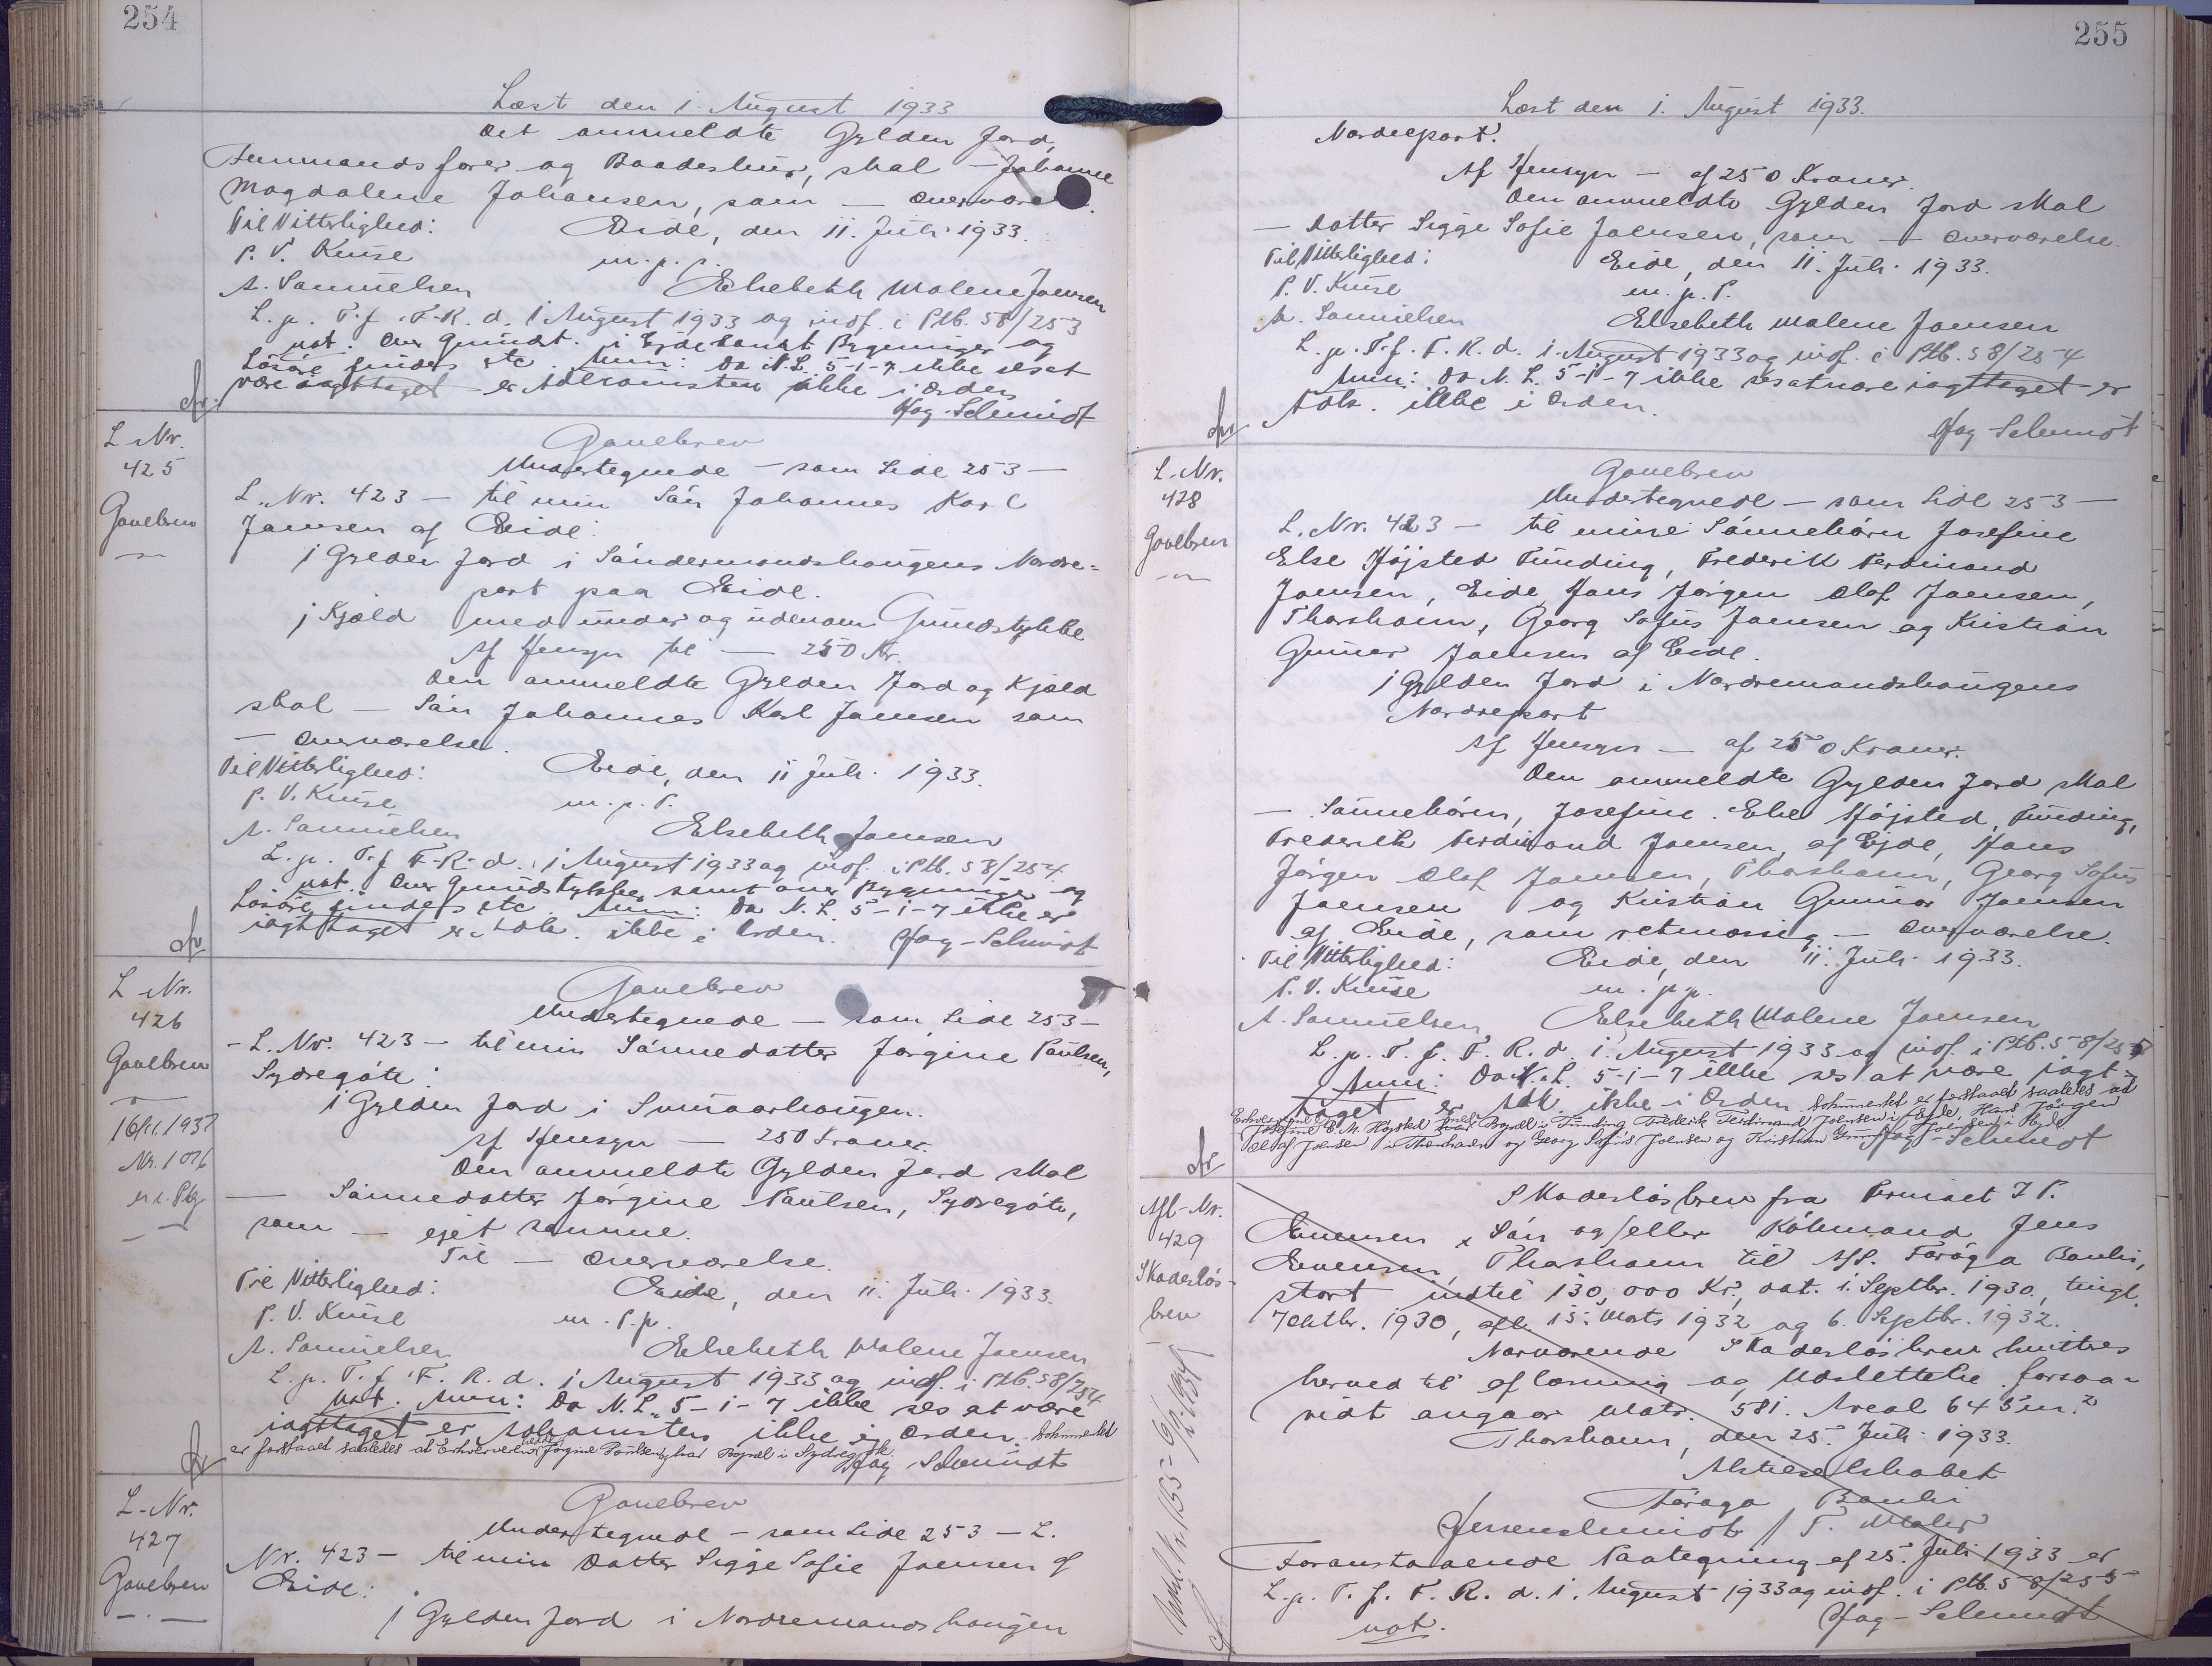 254
Læst den 1. August 1933
Det anmeldte Gylden Jord,
Tummandsfarer og Baadeshus, skal — Johanne
Magdalene Johansen, som — Overværelse.
Til Vitterlighed: Eide, den 11. Juli 1933.
P. V. Kruse m. p. p.
A. Samuelsen Elsebeth Malene Joensen
L. p. T. f. F. R. d. 1 August 1933 og indf. i Ptb. 58/253
not. Over Grundst. i Ejde samt Bygninger og
Løsøre findes etc Anm: Da N. L. 5-1-7 ikke ses at
være iagttaget er Adkomsten ikke i Orden
Hag-Schmidt
L. Nr.
425
Gavebrev
Gavebrev
Undertegnede — som Side 253 —
L. Nr. 423 — til min Søn Johannes Karl
Joensen af Eide:
1 Gylden Jord i Søndermandshougens Nordre=
part paa Eide.
1 Kjæld med under og udenom Grundstykke
Af Hensyn til — 250 Kr.
Den anmeldte Gylden Jord og Kjæld
skal — Søn Johannes Karl Joensen som
— Overværelse.
Til Vitterlighed: Eide, den 11 Juli 1933.
P. V. Kruse m. p. p.
A. Samuelsen Elsebeth Joensen
L. p. T. f. F. R. d. 1 August 1933 og indf. i Ptb. 58/254
not. Over Grundstykke samt over Bygninger og
Løsøre findes etc Anm: Da N. L. 5-1-7 ikke er
iagttaget er Adk. ikke i Orden. Hag-Schmidt
L. Nr.
426
Gavebrev
16/11. 1937
Nr. 1076
Gavebrev
Undertegnede — som Side 253 —
- L. Nr. 423 — til min Sønnedatter Jørgine Paulsen,
Sydregøte:
1 Gylden Jord i Sunnaarhougen.
Af Hensyn — 250 Kroner.
Den anmeldte Gylden Jord skal
— Sønnedatter Jørgine Paulsen, Sydregøte,
som — ejet samme.
Til — Overværelse.
Til Vitterlighed: Eide, den 11. Juli 1933.
P. V. Kruse m. p. p.
A. Samuelsen Elsebeth Malene Joensen
L. p. T. f. F. R. d. 1 August 1933 og indf. i Ptb. 58/254
not. Anm: Da N. L. 5-1-7 ikke ses at være
iagttaget er Adkomsten ikke i Orden. Dokumentet
er forstaaet saaledes at Erhververen Jørgine Paulsen har Bopæl i Sydregøte
Hag Schmidt
L. Nr.
427
Gavebrev
Gavebrev
Undertegnede — som Side 253 — L.
Nr. 423 — til min Datter Sigge Sofie Joensen af
Eide:
1 Gylden Jord i Nordremandshougen
255
Læst den 1. August 1933.
Nordrepart.
Af Hensyn — af 250 Kroner.
Den anmeldte Gylden Jord skal
— Datter Sigge Sofie Joensen, som — Overværelse.
Til Vitterlighed: Eide, den 11. Juli 1933.
P. V. Kruse m. p. p.
A. Samuelsen Elsebeth Malene Joensen
L. p. T. f. F. R. d. 1. August 1933 og indf. i Ptb. 58/254
Anm: Da N. L. 5-1-7 ikke ses at være iagttaget er
Adk. ikke i Orden.
Hag-Schmidt
L. Nr.
428
Gavebrev
Gavebrev
Undertegnede — som Side 253 —
L. Nr. 423 — til mine Sønnebørn Josefine
Else Højsted Funding, Frederik Ferdinand
Joensen, Eide, Hans Jørgen Olaf Joensen,
Thorshavn, Georg Sofus Joensen og Kristian
Gunnar Joensen af Eide.
1 Gylden Jord i Nordremandshougens
Nordrepart
Af Hensyn — af 250 Kroner.
Den anmeldte Gylden Jord skal
— Sønnebørn, Josefine Else Højsted, Funding,
Frederik Ferdinand Joensen, af Ejde, Hans
Jørgen Olaf Joensen, Thorshavn, Georg Sofus
Joensen og Kristian Gunnar Joensen
af Eide, som retmæssig — Overværelse.
Til Vitterlighed: Eide, den 11. Juli 1933.
P. V. Kruse m. p. p.
A. Samuelsen Elsebeth Malene Joensen
L. p. T. f. F. R. d. 1. August 1933 og indf. i Ptb. 58/255
Anm: Da N. L. 5-1-7 ikke ses at være iagt-
taget er Adk ikke i Orden. Dokumentet er forstaaet saaledes at
Josefine E. M. Højsted Bopæl i Funding Frederik Ferdinand Joensen i Ejde, Hans Jørgen
Olaf Joensen i Thorshavn og Georg Sofus Joensen og Kristian Gunnar Joensen i Ejde
Hag-Schmidt
Afl-Nr.
429
Skadesløs-
brev
Skadesløsbrev fra Permået I P.
Evensen, Søn og/eller Købmand Jens
Evensen, Thorshavn til A/S. Førøya Banki,
stort indtil 130,000 Kr., dat. 1. Septbr. 1930, tingl.
7 Oktbr. 1930, afl. 15. Marts 1932 og 6. Septbr. 1932.
Nærværende Skadesløsbrev kvitteres
herved til aflæsning og Udslettelse forsaa-
vidt angaar Matr. 581. Areal 645 m.²
Thorshavn, den 25. Juli 1933.
Aktieselskabet
Føroya Banki
/ T. Mohr
Foranstaaende Paategning af 25. Juli 1933 er
L. p. T. f. F. R. d. 1. August 1933 og indf. i Ptb. 58/255
not. Hag-Schmidt